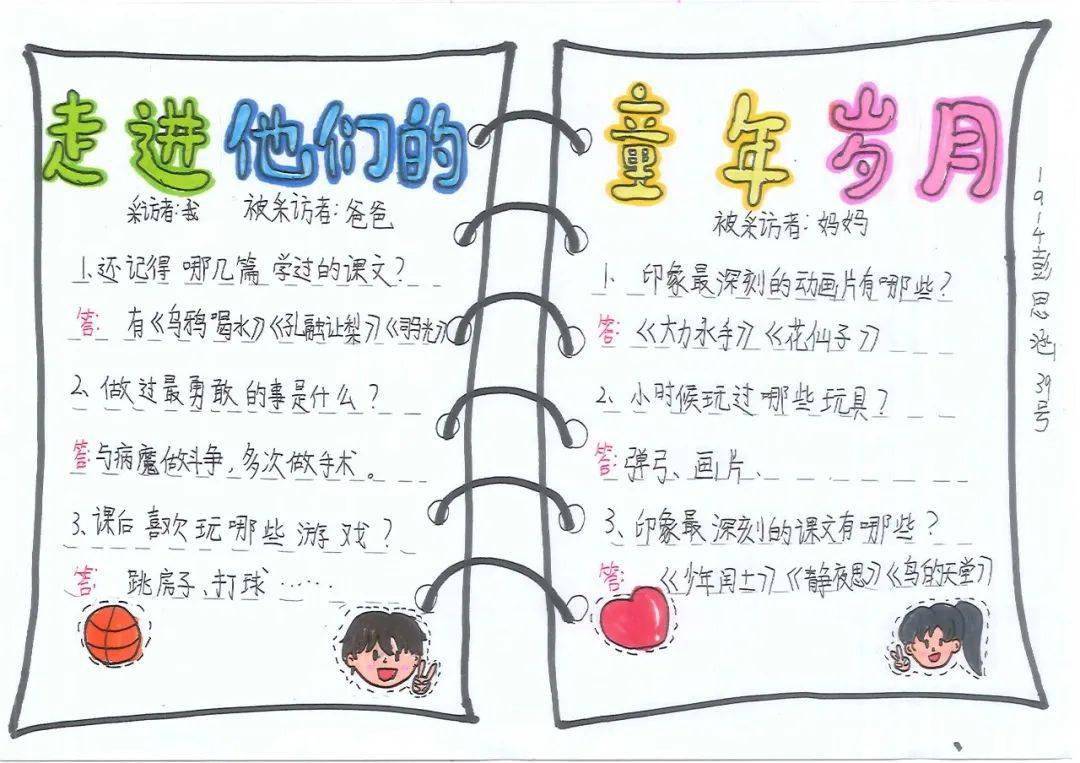 走进他们的
采访者:我 被采访者:爸爸
1.还记得哪几篇学过的课文?
答: 有《乌鸦喝水》《孔融让梨》
2、做过最勇敢的事是什么?
答:与病魔做斗争,多次做手术。
3、课后喜欢玩哪些游戏?
答: 跳房子、打球……
童年岁月
被采访者:妈妈
1、印象最深刻的动画片有哪些?
答:《大力水手》《花仙子》
2、小时候玩过哪些玩具?
答:弹弓、画片、
3、印象最深刻的课文有哪些?
答: 《少年闰土》《静夜思》《鸟的天堂》
19-4彭思涵 39号